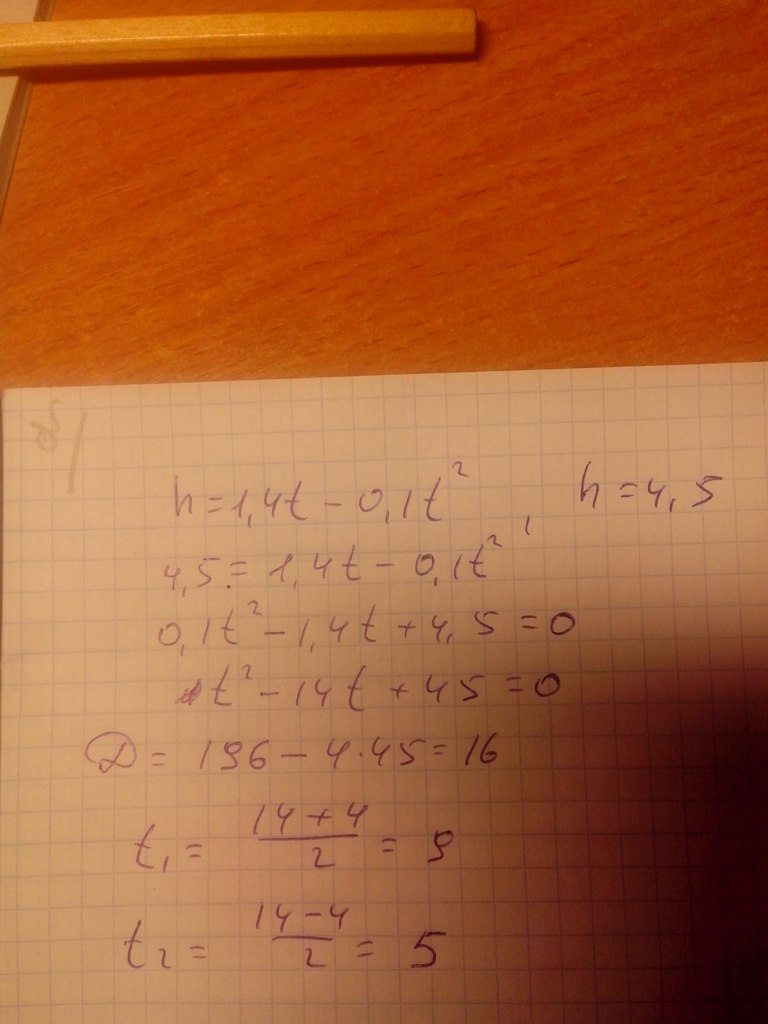 h = 1,4t - 0,1t², h = 4,5
4,5 = 1,4t - 0,1t²
0,1t² - 1,4t + 4,5 = 0
t² - 14t + 45 = 0
D = 196 - 4·45 = 16
t₁ = (14 + 4)/2 = 9
t₂ = (14 - 4)/2 = 5